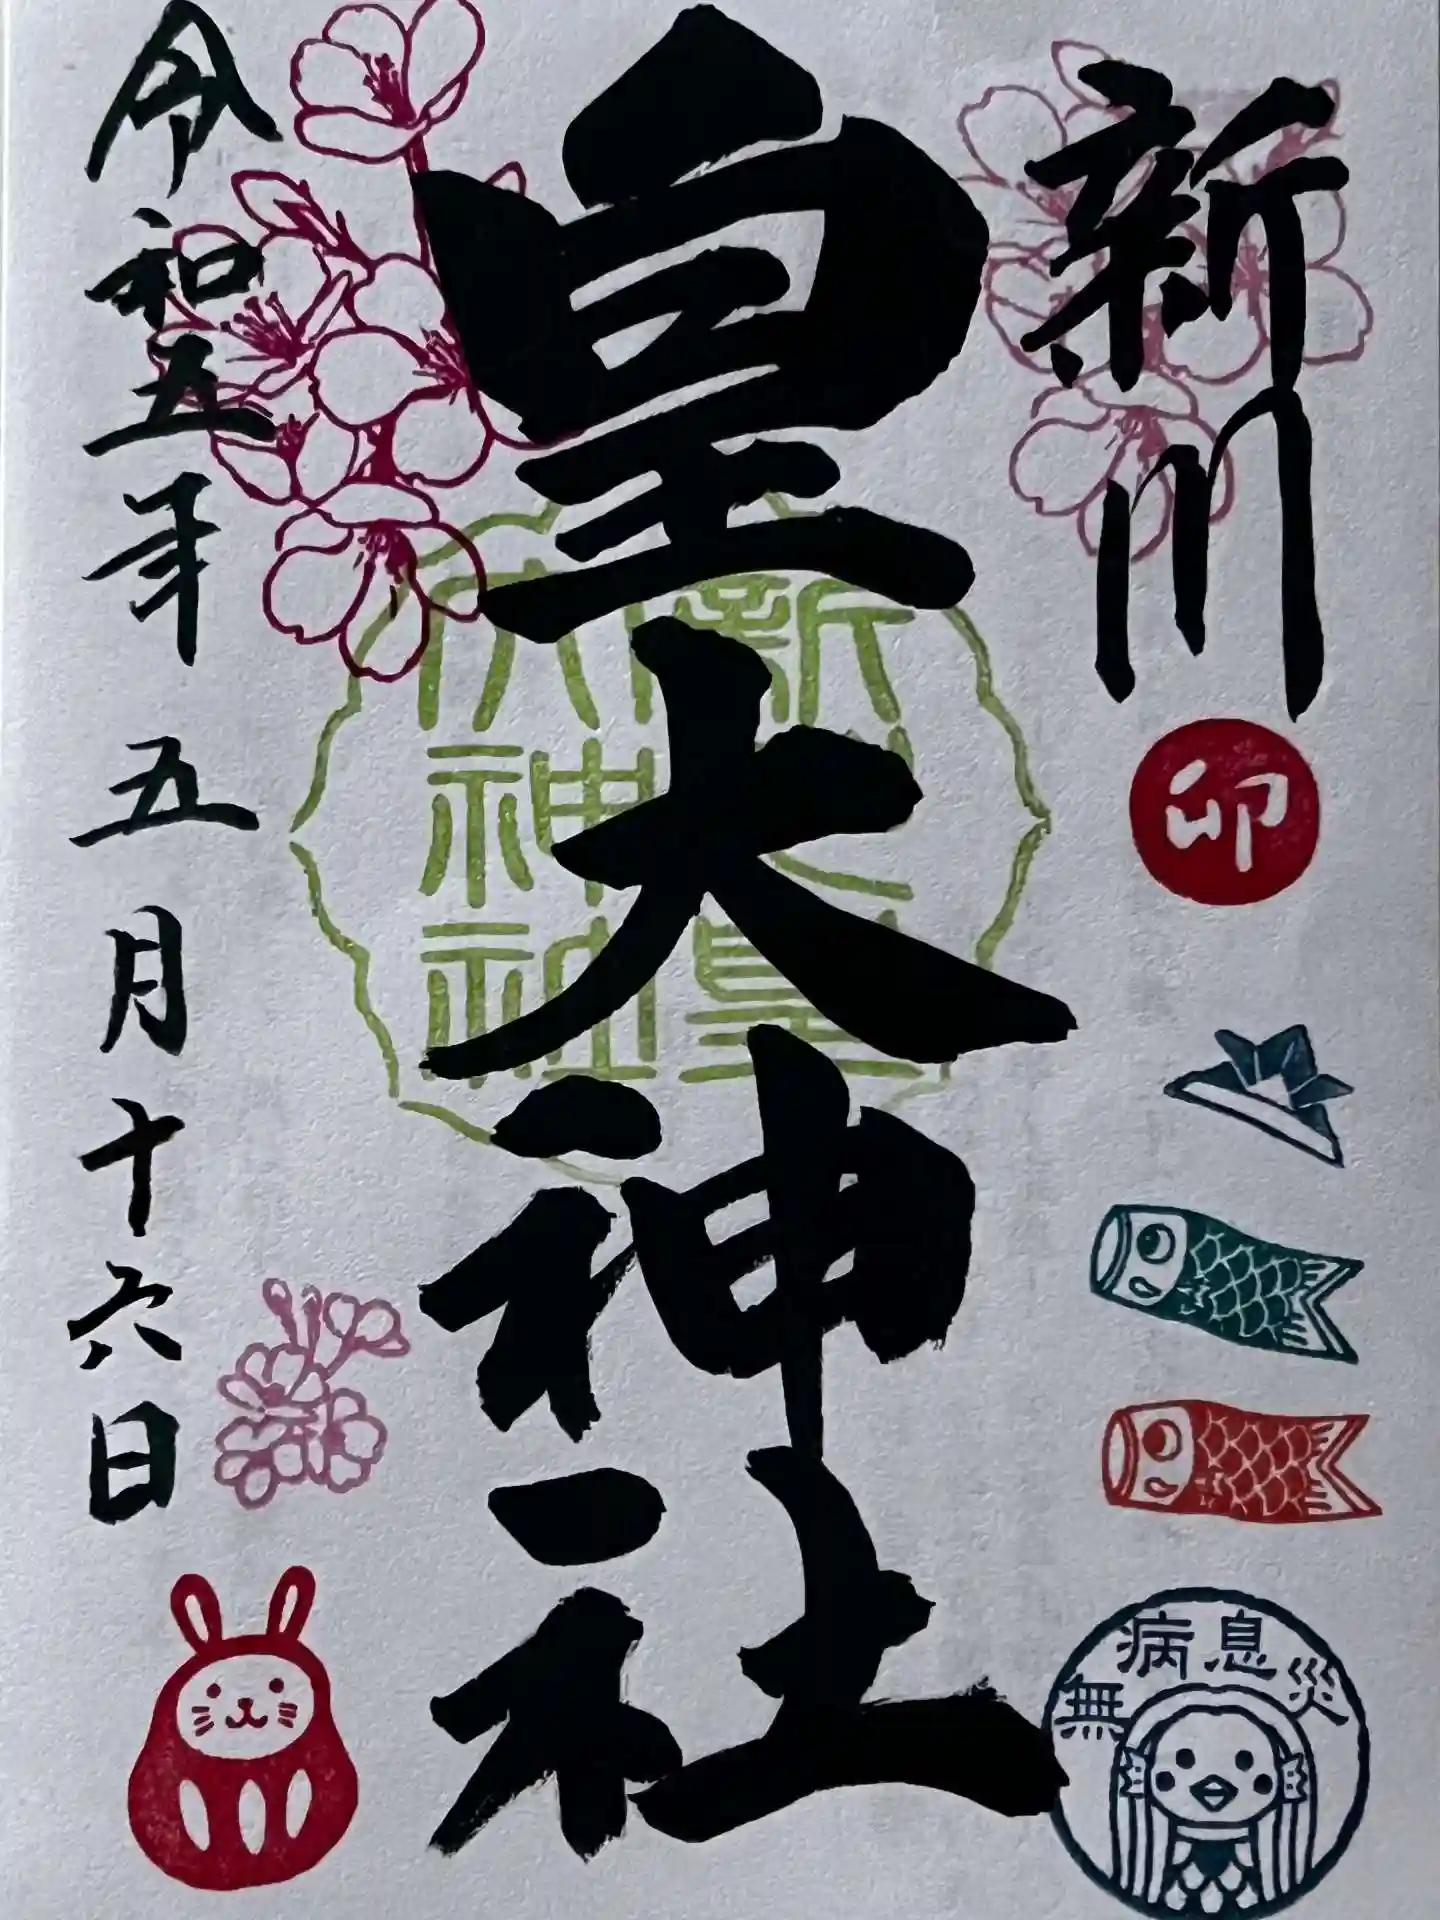 新川
卯
無病息災
皇大神社
新川皇
大神社
令和五年 五月十六日